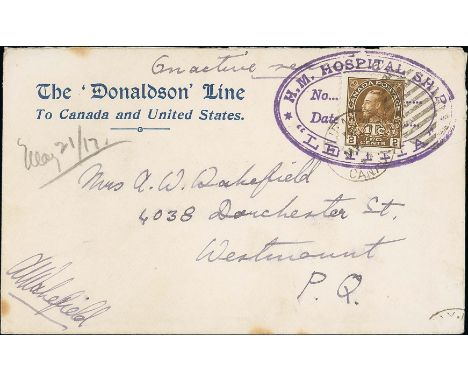 On active se
The 'Donaldson' Line
To Canada and United States.
H.M. HOSPITAL SHIP
No...
Date
"LETITIA"
CANADA POSTAGE
2 CENTS 2
CANA
May 21/17.
Mrs A. W. Wakefield
4038 Dorchester St.
Westmount
P. Q.
AWakefield